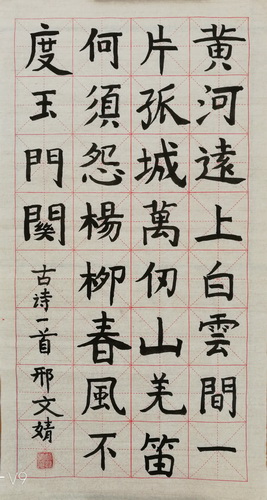 黄河遠上白雲間一
片孤城萬仞山羌笛
何須怨楊柳春風不
度玉門關
古诗一首 邢文婧
V9